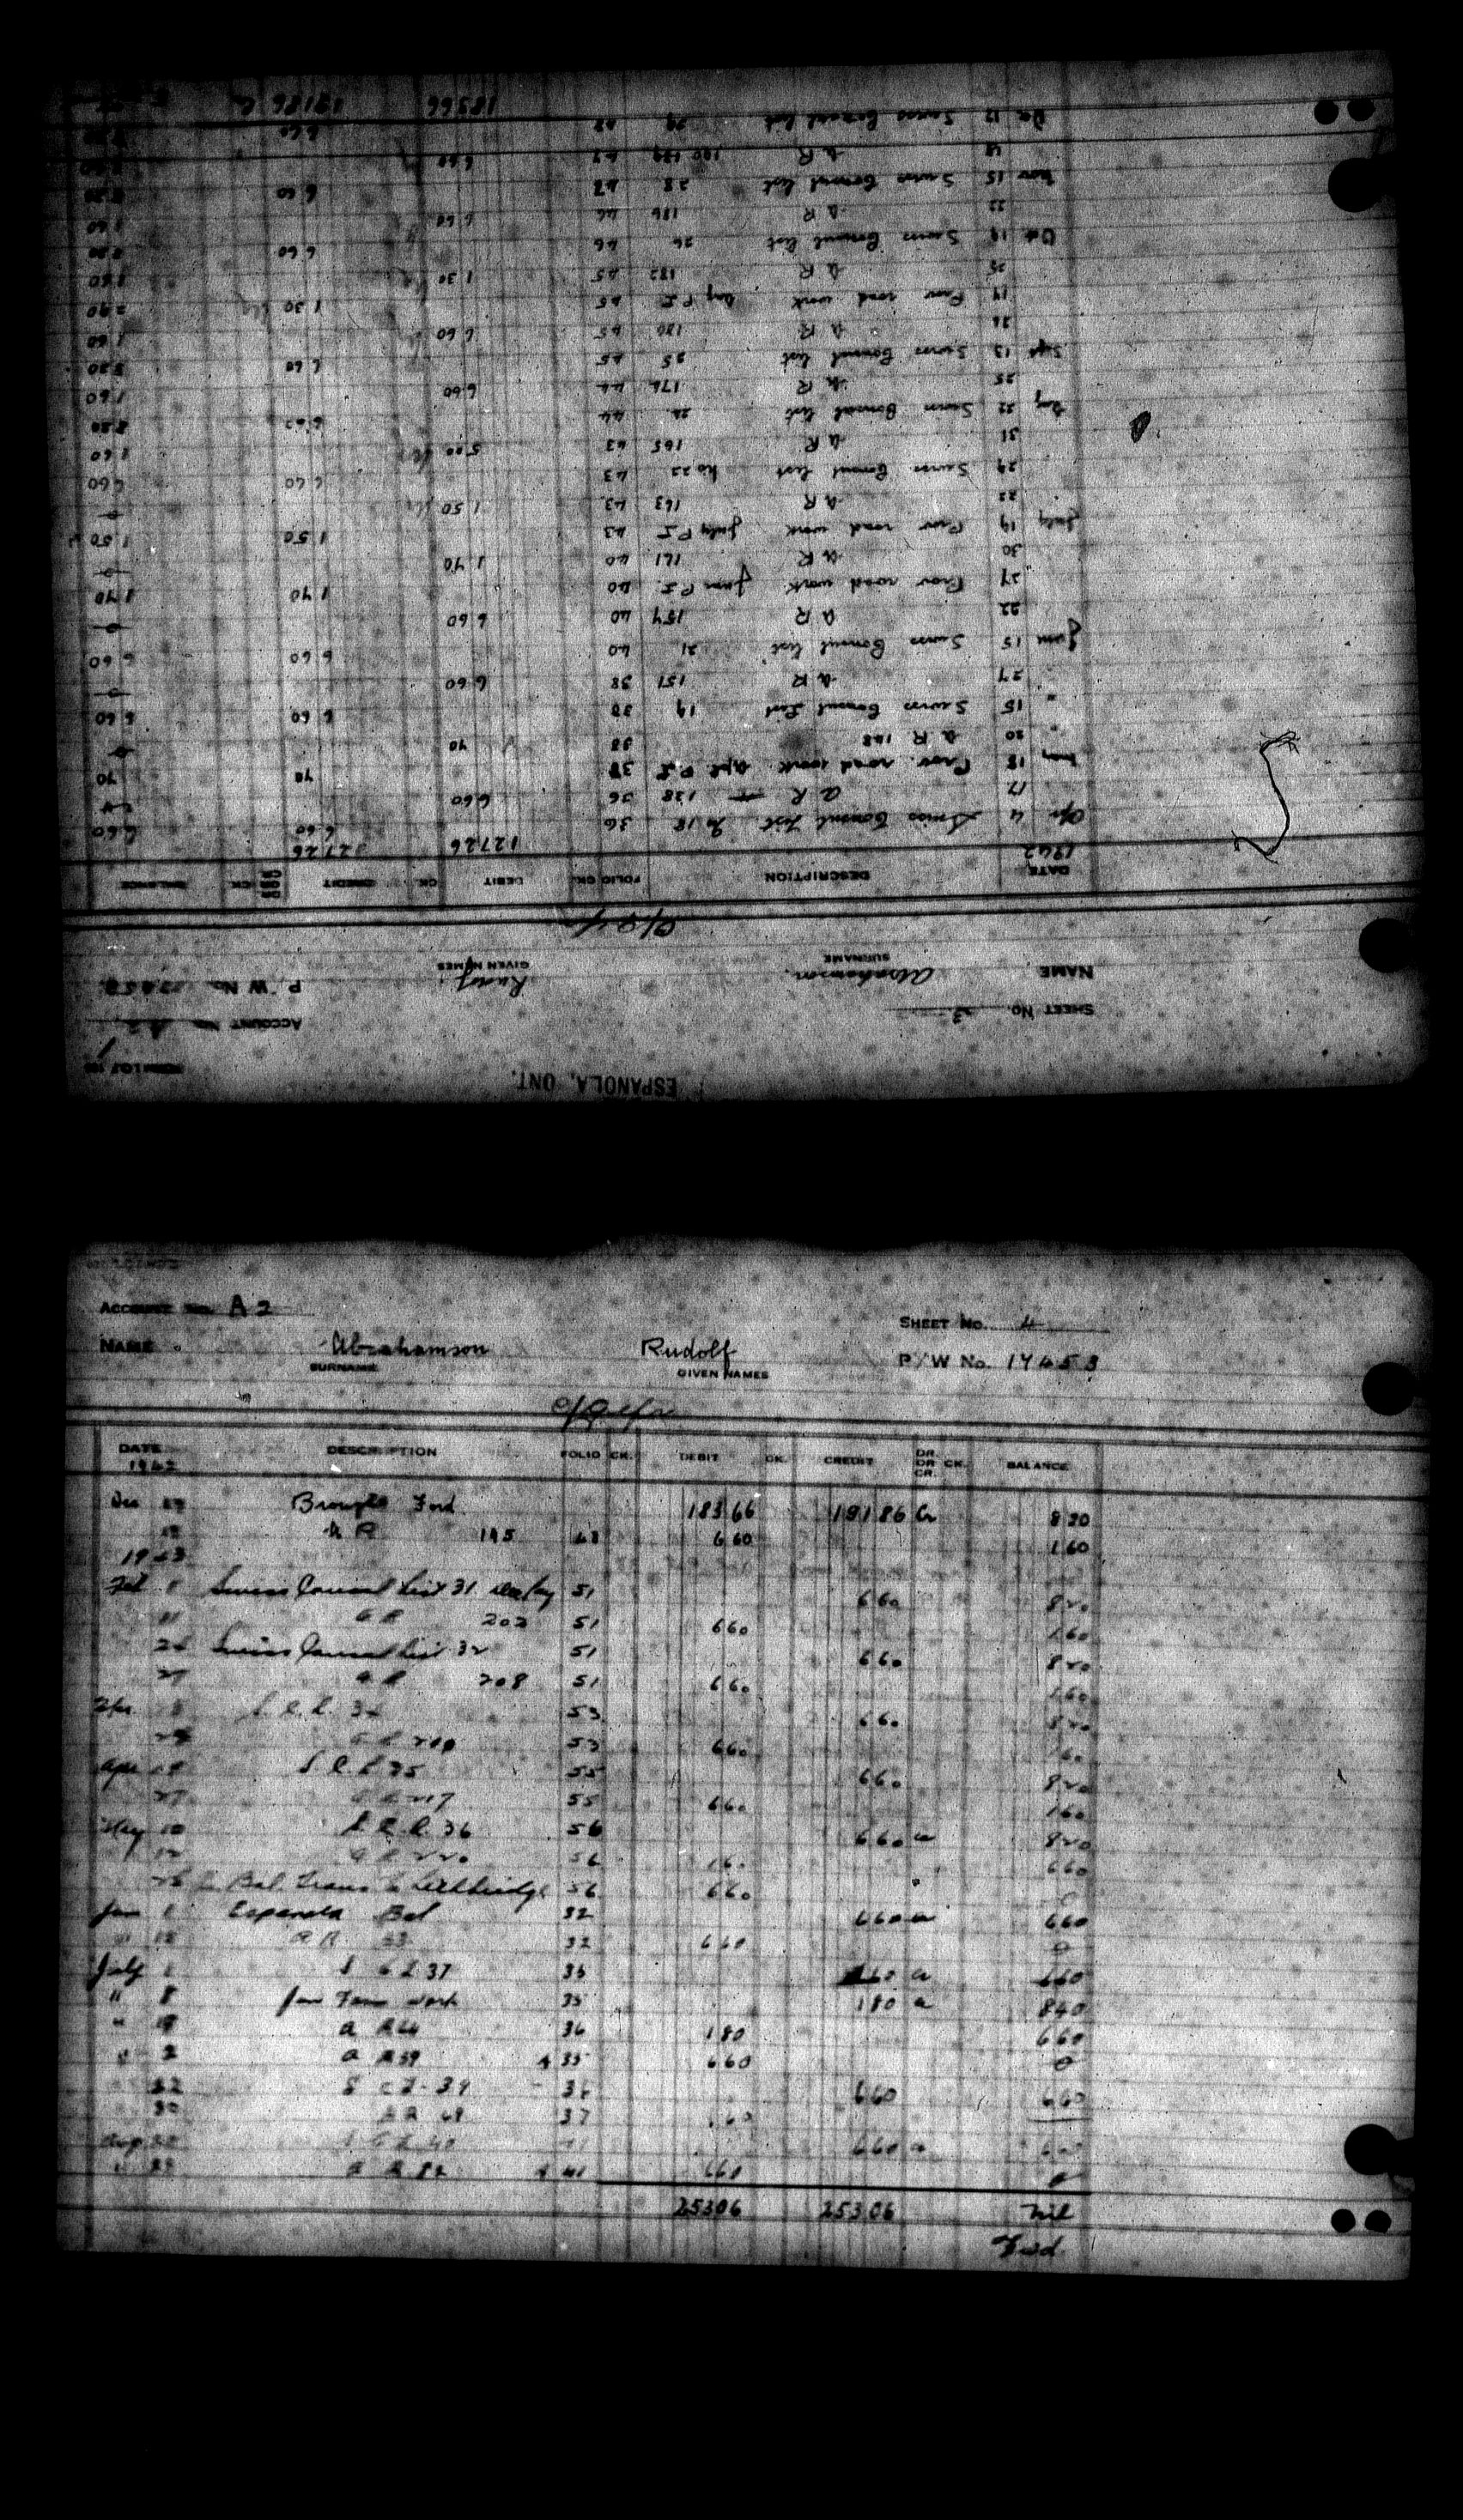 ESPANOLA, ONT.
SHEET NO. 3
ACCOUNT NO. A2
NAME Abrahamson Rudolf P/W No.
SURNAME GIVEN NAMES
DATE DESCRIPTION FOLIO CK. DEBIT CK. CREDIT DR. OR CR. CK. BALANCE
1942 127 26 127 26
Apr 4 Swiss Consul List No 18 36 6 60 6 60
17 A R 138 36 6 60
May 18 Prov. road work Apl P.I. 38 70 70
20 A R 148 38 70
" 15 Swiss Consul List 19 38 6 60 6 60
27 A R 151 38 6 60
June 15 Swiss Consul list 21 40 6 60 6 60
22 A R 157 40 6 60
27 Prov road work June P.I. 40 1 70 1 70
30 A R 161 40 1 70
July 19 Prov road work July P.I. 43 1 50 1 50
22 A R 163 43 1 50
29 Swiss Consul list No 22 43 6 60 6 60
31 A R 165 43 5 00 1 60
Aug 22 Swiss Consul list 24 44 6 60 8 20
25 A R 176 44 6 60 1 60
Sept 13 Swiss Consul list 25 45 6 60 8 20
26 A R 180 45 6 60 1 60
19 Prov road work Aug P.I. 45 1 30 2 90
25 A R 182 45 1 30 1 60
Oct 19 Swiss Consul list 26 46 6 60 8 20
22 A R 186 46 6 60 1 60
Nov 15 Swiss Consul list 28 47 6 60 8 20
18 A R 47 6 60 1 60
Dec 17 Swiss Consul list 29 48 6 60 8 20
183 66 191 86
ACCOUNT NO. A 2
SHEET NO. 4
NAME Abrahamson Rudolf P/W No. 17453
SURNAME GIVEN NAMES
DATE DESCRIPTION FOLIO CK. DEBIT CK. CREDIT DR. OR CR. CK. BALANCE
1942
Dec Brought Ford 183 66 191 86 Cr 8 20
A R 195 48 6 60 1 60
1943
Feb 1 Swiss Consul List 31 51 6 60 8 20
11 A R 202 51 6 60 1 60
Swiss Consul List 32 51 6 60 8 20
27 A R 208 51 6 60 1 60
S. C. L. 53 6 60 8 20
A R 53 6 60 1 60
Apr S C L 35 55 6 60 8 20
27 A R 217 55 6 60 1 60
May 10 S. C. L. 36 56 6 60 Cr 8 20
12 A R 220 56 1 60 6 60
Bal. Trans to Lethbridge 56 6 60
Jun 1 Espanola Bal 32 6 60 Cr 6 60
A R 32 6 60 0
July 1 S C L 37 35 6 60 Cr 6 60
" 8 Jun Farm work 35 1 80 Cr 8 40
" A R 36 1 80 6 60
" 2 A R 59 35 6 60 0
22 S C L 39 36 6 60 6 60
30 A R 69 37 6 60
Aug S C L 40 41 6 60 Cr 6 60
" A R 82 41 6 60 0
253 06 253 06 Nil
Fwd.